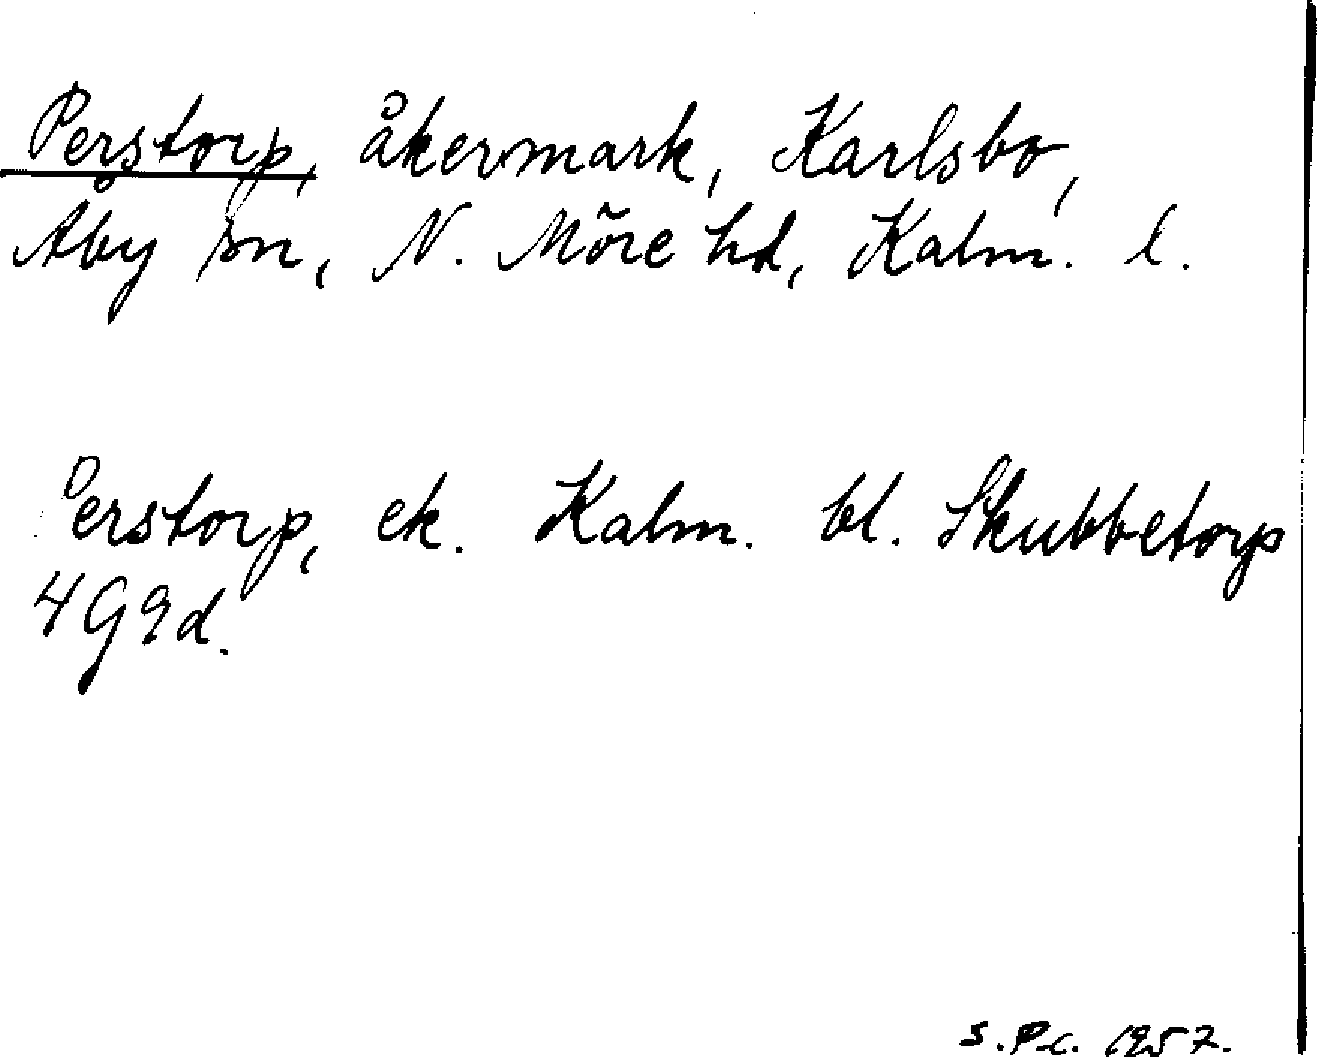 Perstorp, åkermark, Karlsbo,
Åby sn, N. Möre hd, Kalm. l.
Perstorp, ek. Kalm. bl. Skubbetorp
4G9d.
S.P-c. 1957.